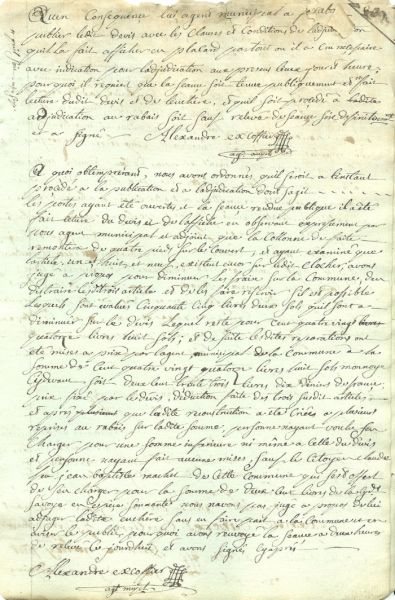 Qu'en Conséquence led. agent municipal a fait
publier ledit devis avec les Clauses et Conditions de ladjudication
quil la fait afficher en placard partout ou il a été nécessaire
avec indication pour ladjudication aux present lieux jour et heure
pourquoi il requiert que la séance soit tenue publiquement et fait
lecture dudit devis et de l'enchere, et quil soit procédé à ladite
adjudication au rabais soit sauf relevé de séance soit définitivement
et a signé Alexandre excoffier
agt munpl
A quoi obtempérant, nous avons ordonné, quil seroit a linstant
procédé a la publication et a ladjudication dont sagit
les portes ayant été ouvertes et la séance rendue publique il a été
fait lecture du devis et de laffiche en observant expressement par
nous agent municipal et adjoint que la Colonne de faite
remontera de quatre pieds sur le Couvert, et ayant examiné que
huit et neuf existent encor sur ledit Clocher, avons
jugé a propos pour diminuer les frais sur la Commune, de
distraire lesd. trois articles et de les faire resservir sil est possible
Lesquels sont évalués Cinquante Cinq livres deux sols quil sont a
diminuer sur le devis Lequel reste pour Cent quatre vingt
quatorze livres huit sols, et de suite lesdites reparations ont
été mises a prix par lagent municipal de la Commune a la
somme de Cent quatre vingt quatorze livres huit sols monnoye
soit Deux cent trente trois livres dix deniers de france
prix fixé par le devis, déduction faite des trois susdit articles
et après plusieurs que ladite reconstruction a été Criée a plusieurs
reprises au rabais sur ladite somme, personne nayant voulu sen
Charger pour une somme inférieure ni même a Celle du devis
et personne nayant fait aucune mises, sauf le Citoyen Claude
feu jean baptiste machet de Cette Commune qui sest offert
de sen Charger pour la somme de deux cent livres
Savoye en espèces sonnantes nous navons pas jugé a propos de lui
adjuger ladite enchere sans en faire part a la Commune et en
avertir le public, pourquoi avons renvoyé la séance a deux heures
de relevé les jour dudit et avons signés
Alexandre excoffier
agt munpl